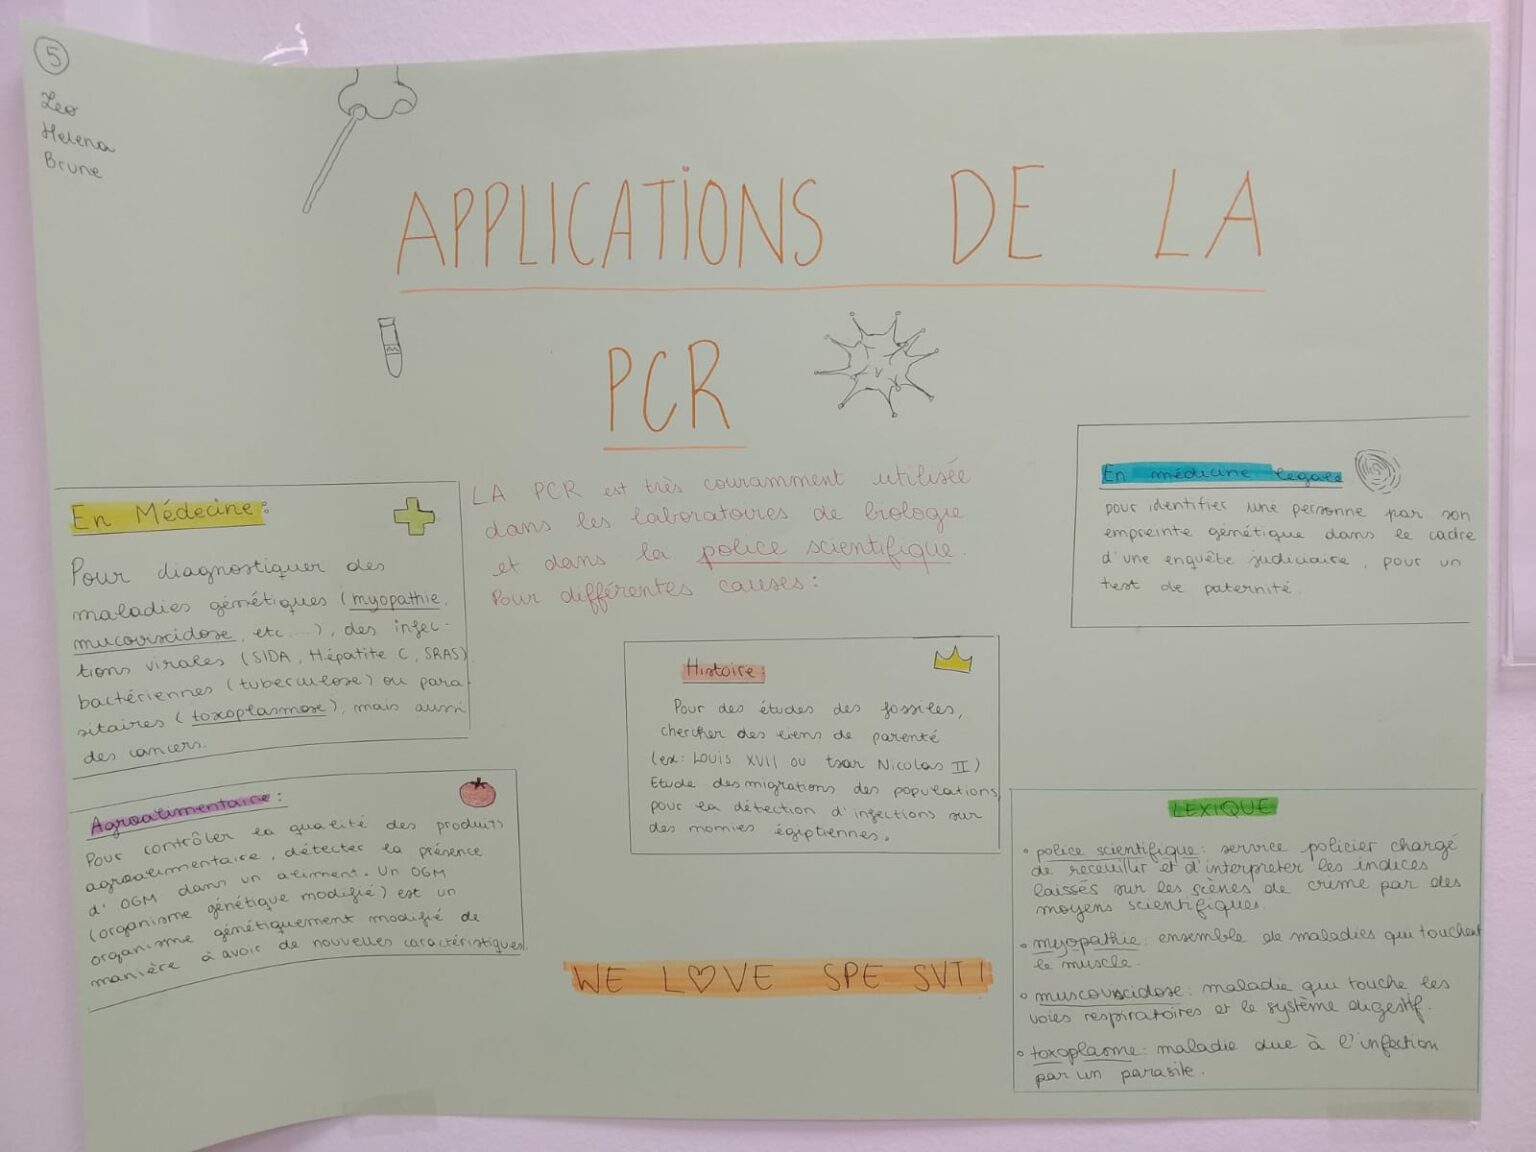 5
Leo
Helena
Brune
APPLICATIONS DE LA
PCR
LA PCR est très couramment utilisée
dans les laboratoires de biologie
et dans la police scientifique.
Pour différentes causes :
En Médecine :
Pour diagnostiquer des
maladies génétiques (myopathie,
mucoviscidose, etc....), des infec-
tions virales (SIDA, Hépatite C, SRAS)
bactériennes (tuberculose) ou para-
sitaires (toxoplasmose), mais aussi
des cancers.
Agroalimentaire :
Pour contrôler la qualité des produits
agroalimentaire, détecter la présence
d'OGM dans un aliment. Un OGM
(organisme génétique modifié) est un
organisme génétiquement modifié de
manière à avoir de nouvelles caractéristiques.
Histoire :
Pour des études des fossiles,
chercher des liens de parenté
(ex: Louis XVII ou tsar Nicolas II)
Etude des migrations des populations,
pour la détection d'infections sur
des momies égiptiennes.
En médecine legale
pour identifier une personne par son
empreinte génétique dans le cadre
d'une enquête judiciaire, pour un
test de paternité.
WE L♡VE SPE SVT!
LEXIQUE
• police scientifique : service policier chargé
de receuillir et d'interpreter les indices
laissés sur les scènes de crime par des
moyens scientifiques.
• myopathie : ensemble de maladies qui touchent
le muscle.
• muscoviscidose : maladie qui touche les
voies respiratoires et le système digestif.
• toxoplasme : maladie due à l'infection
par un parasite.